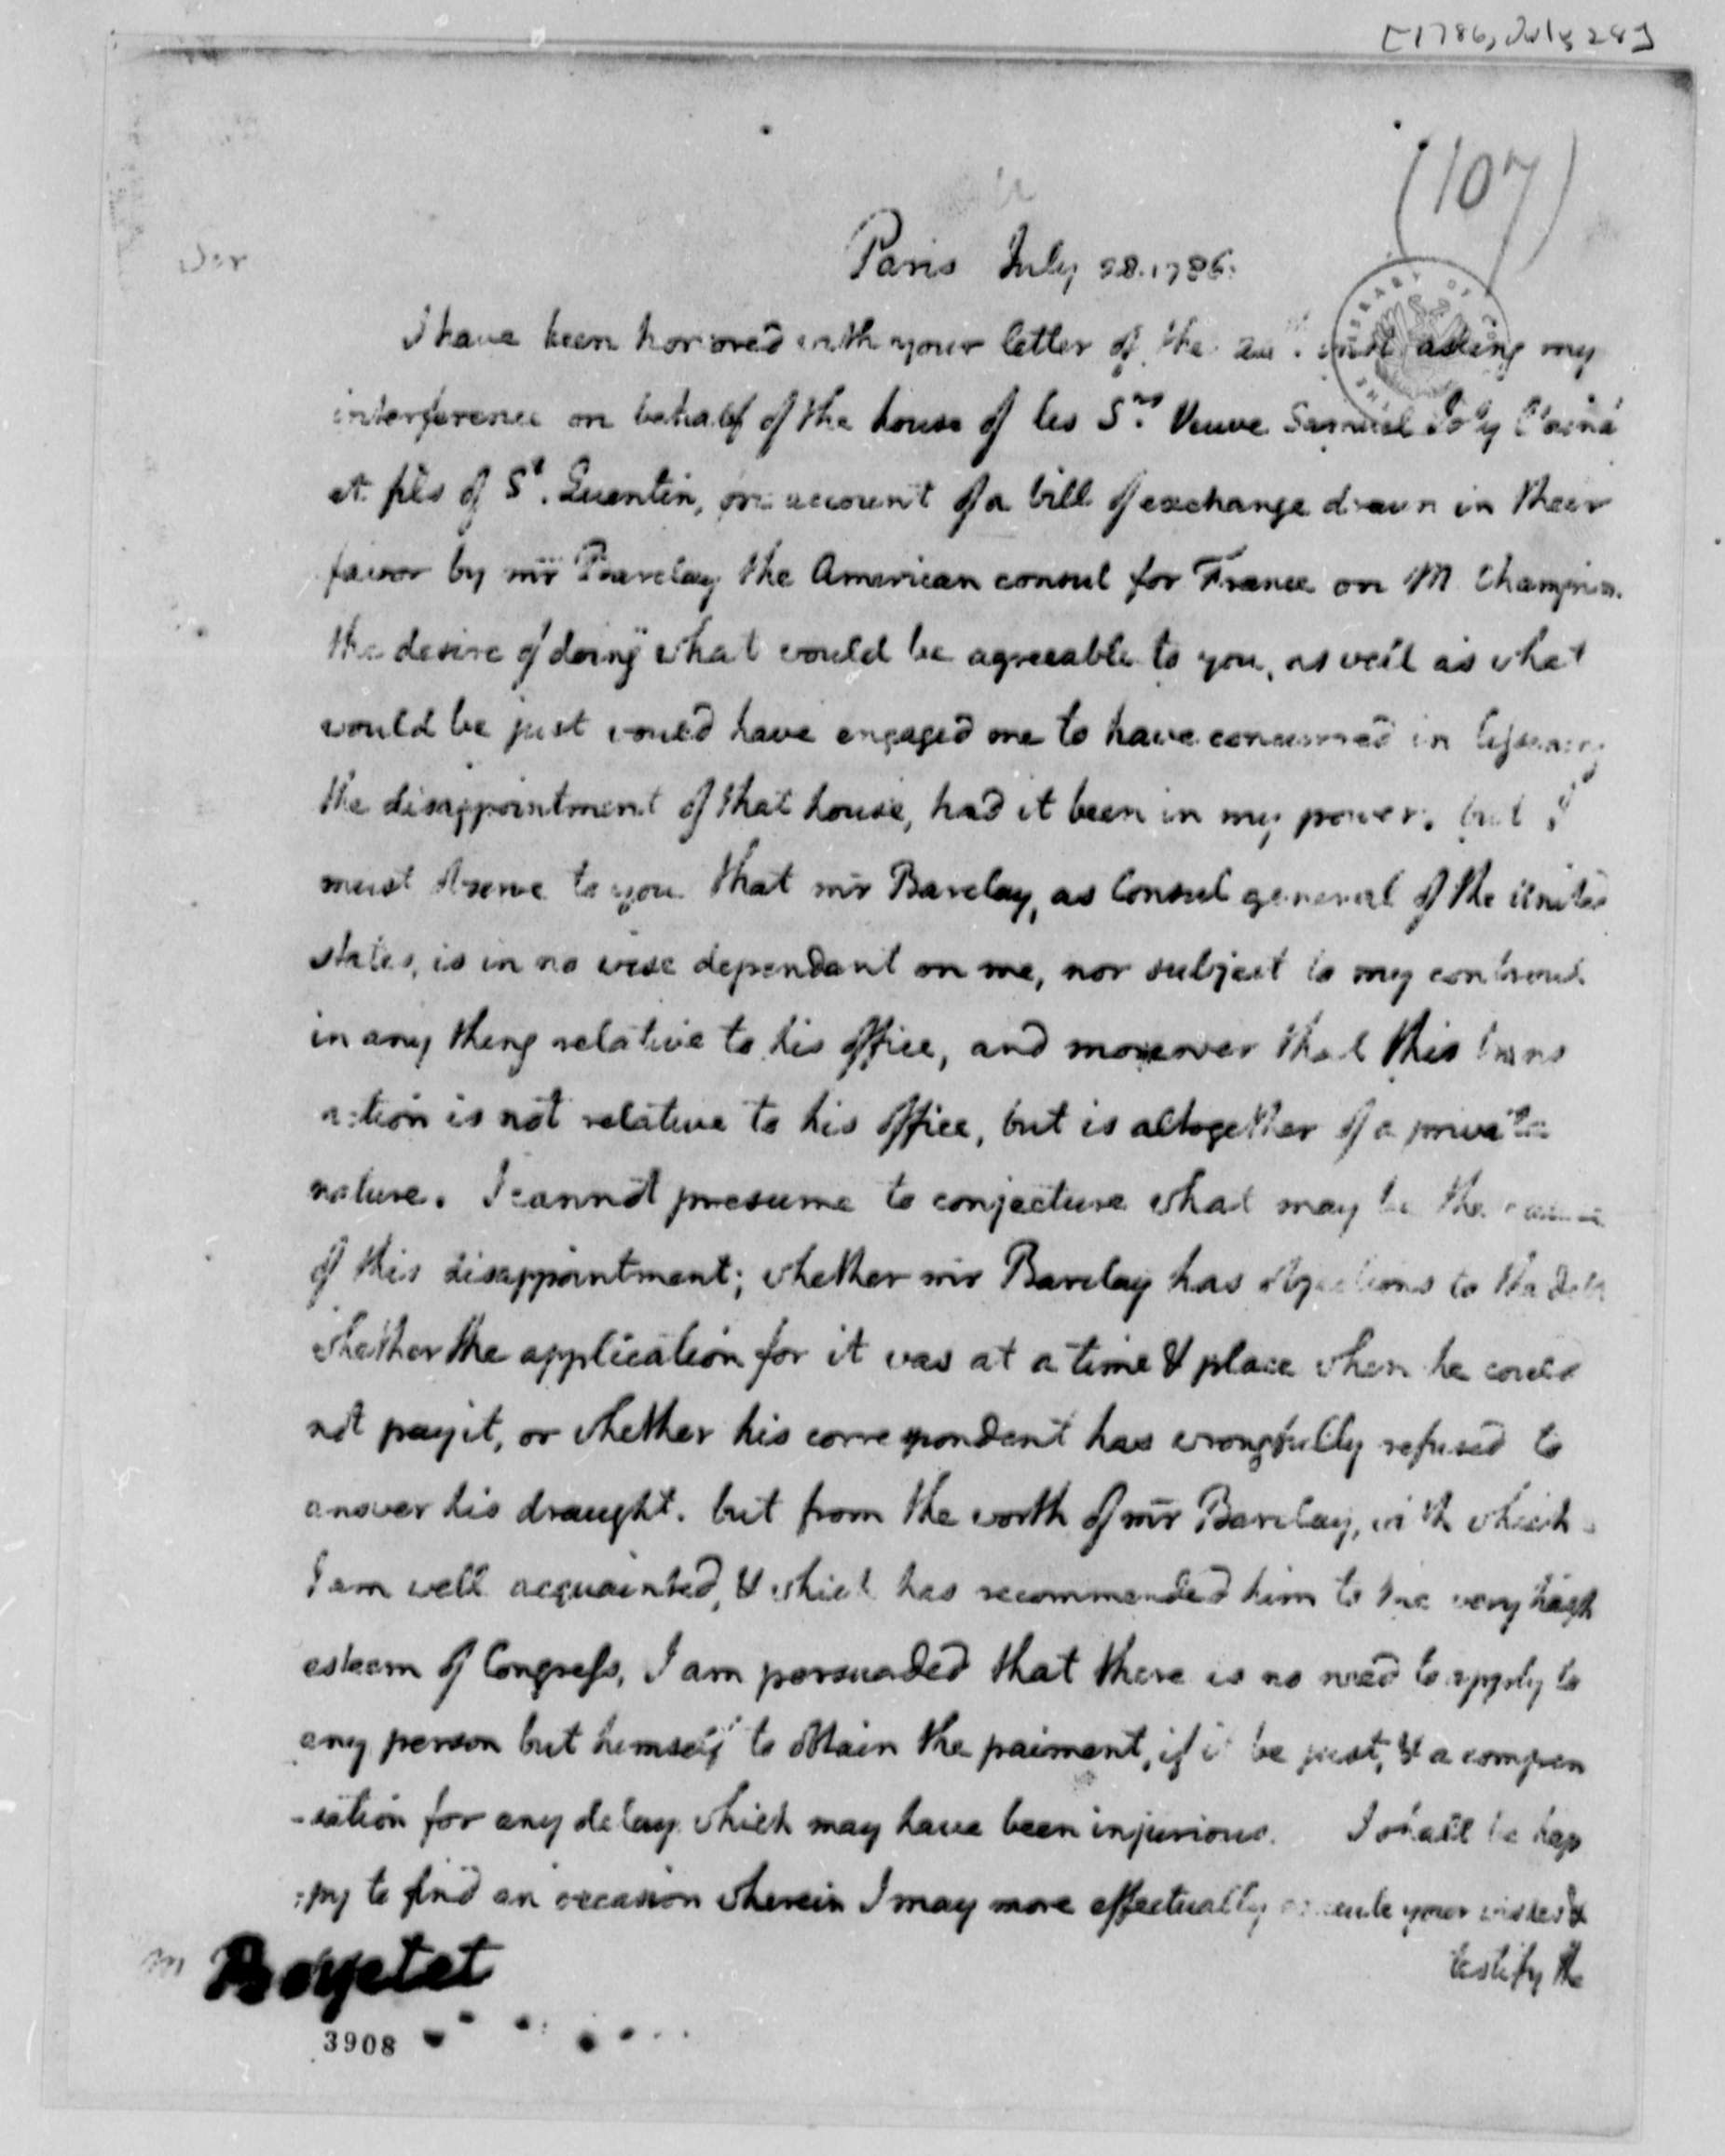 [1786, July 28]
(107)
Sir
Paris July 28. 1786.
I have been honored with your letter of the inst. asking my
interference on behalf of the house of les Srs. Veuve Samuel Joly l'ainé
et fils of St. Quentin, on account of a bill of exchange drawn in their
favor by mr Barclay the American consul for France on M. Champion.
the desire of doing what would be agreeable to you, as well as what
would be just would have engaged me to have concurred in lessening
the disappointment of that house, had it been in my power. but I
must observe to you that mr Barclay, as Consul general of the United
states, is in no wise dependant on me, nor subject to my controul
in any thing relative to his office, and moreover that this trans
action is not relative to his office, but is altogether of a private
nature. I cannot presume to conjecture what may be the cause
of this disappointment; whether mr Barclay has objections to the debt
whether the application for it was at a time & place when he could
not pay it, or whether his correspondent has wrongfully refused to
answer his draught. but from the worth of mr Barclay, with which
I am well acquainted, & which has recommended him to the very high
esteem of Congress, I am persuaded that there is no need to apply to
any person but himself to obtain the paiment, if it be just, & a compen
-sation for any delay which may have been injurious. I shall be hap
-py to find an occasion wherein I may more effectually execute your wishes &
testify the
M Boyetet
3908